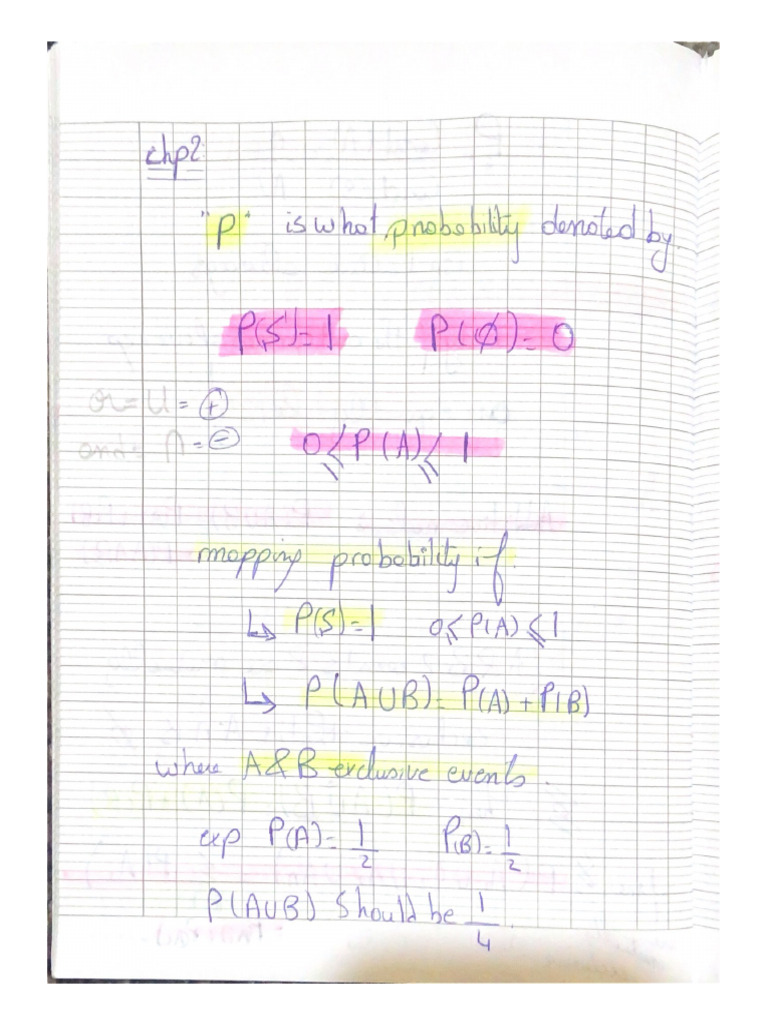 chp2
"P" is what probability denoted by
P(S)=1 P(∅)=0
or = U = ⊕
and = ∩ = ⊖
0 ≤ P(A) ≤ 1
mapping probability if
↳ P(S)=1 0 ≤ P(A) ≤ 1
↳ P(A∪B) = P(A) + P(B)
where A&B exclusive events.
exp P(A) = 1/2 P(B) = 1/2
P(A∪B) Should be 1/4